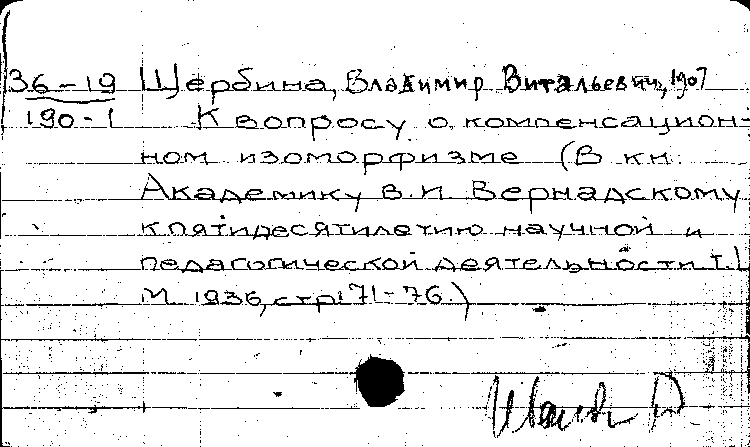 36-19 Щербина, Владимир Витальевич, 1907
190-1 К вопросу о компенсацион-
ном изоморфизме (В кн.
Академику В.И. Вернадскому
к пятидесятилетию научной и
педагогической деятельности т. I
М 1936, стр 171-76.)